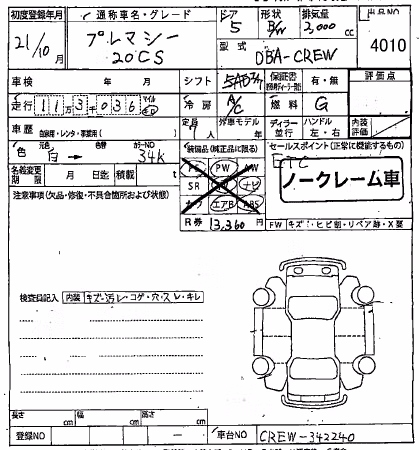 初度登録年月 通称車名・グレード ドア 形状 排気量 出品NO
21/10月 プレマシー 20CS 5 B/W 2,000 cc 4010
型式 DBA-CREW
車検 年 月 シフト 5AT 保証書 有・無 評価点
走行 11万3千036 マイル 冷房 A/C 燃料 G
車歴 自家用・レンタ・事業用( ) 定員 7人 外車モデル 年 ディーラー 並行 ハンドル 左・右 内装評価
色 元色 白→ 色替 カラーNO 34K 装備品(純正品に限る) セールスポイント(正常に機能するもの)
ETC
名義変更期限 月 日迄 積載 t PS PW AW
SR ナビ ノークレーム車
注意事項(欠品・修復・不具合箇所および状態) カワ エアB ABS
R券 13,360円 FW キズ・ヒビ割・リペア跡・X要
検査員記入 内装 キズ・汚レ・コゲ・穴・スレ・キレ
長さ cm 幅 cm 高さ cm
登録NO — 車台NO CREW-342240